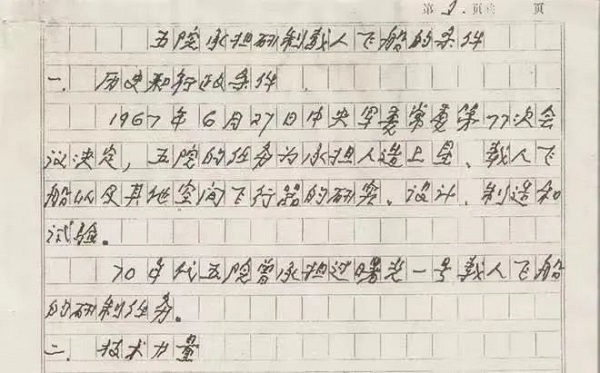 第 1 页 页
五院承担研制载人飞船的条件
一、历史和行政条件
1967年6月27日中央军委常委第77次会
议决定，五院的任务为承担人造卫星、载人飞
船以及其他空间飞行器的研究、设计、制造和
试验。
70年代五院曾承担过曙光一号载人飞船
的研制任务。
二、技术力量